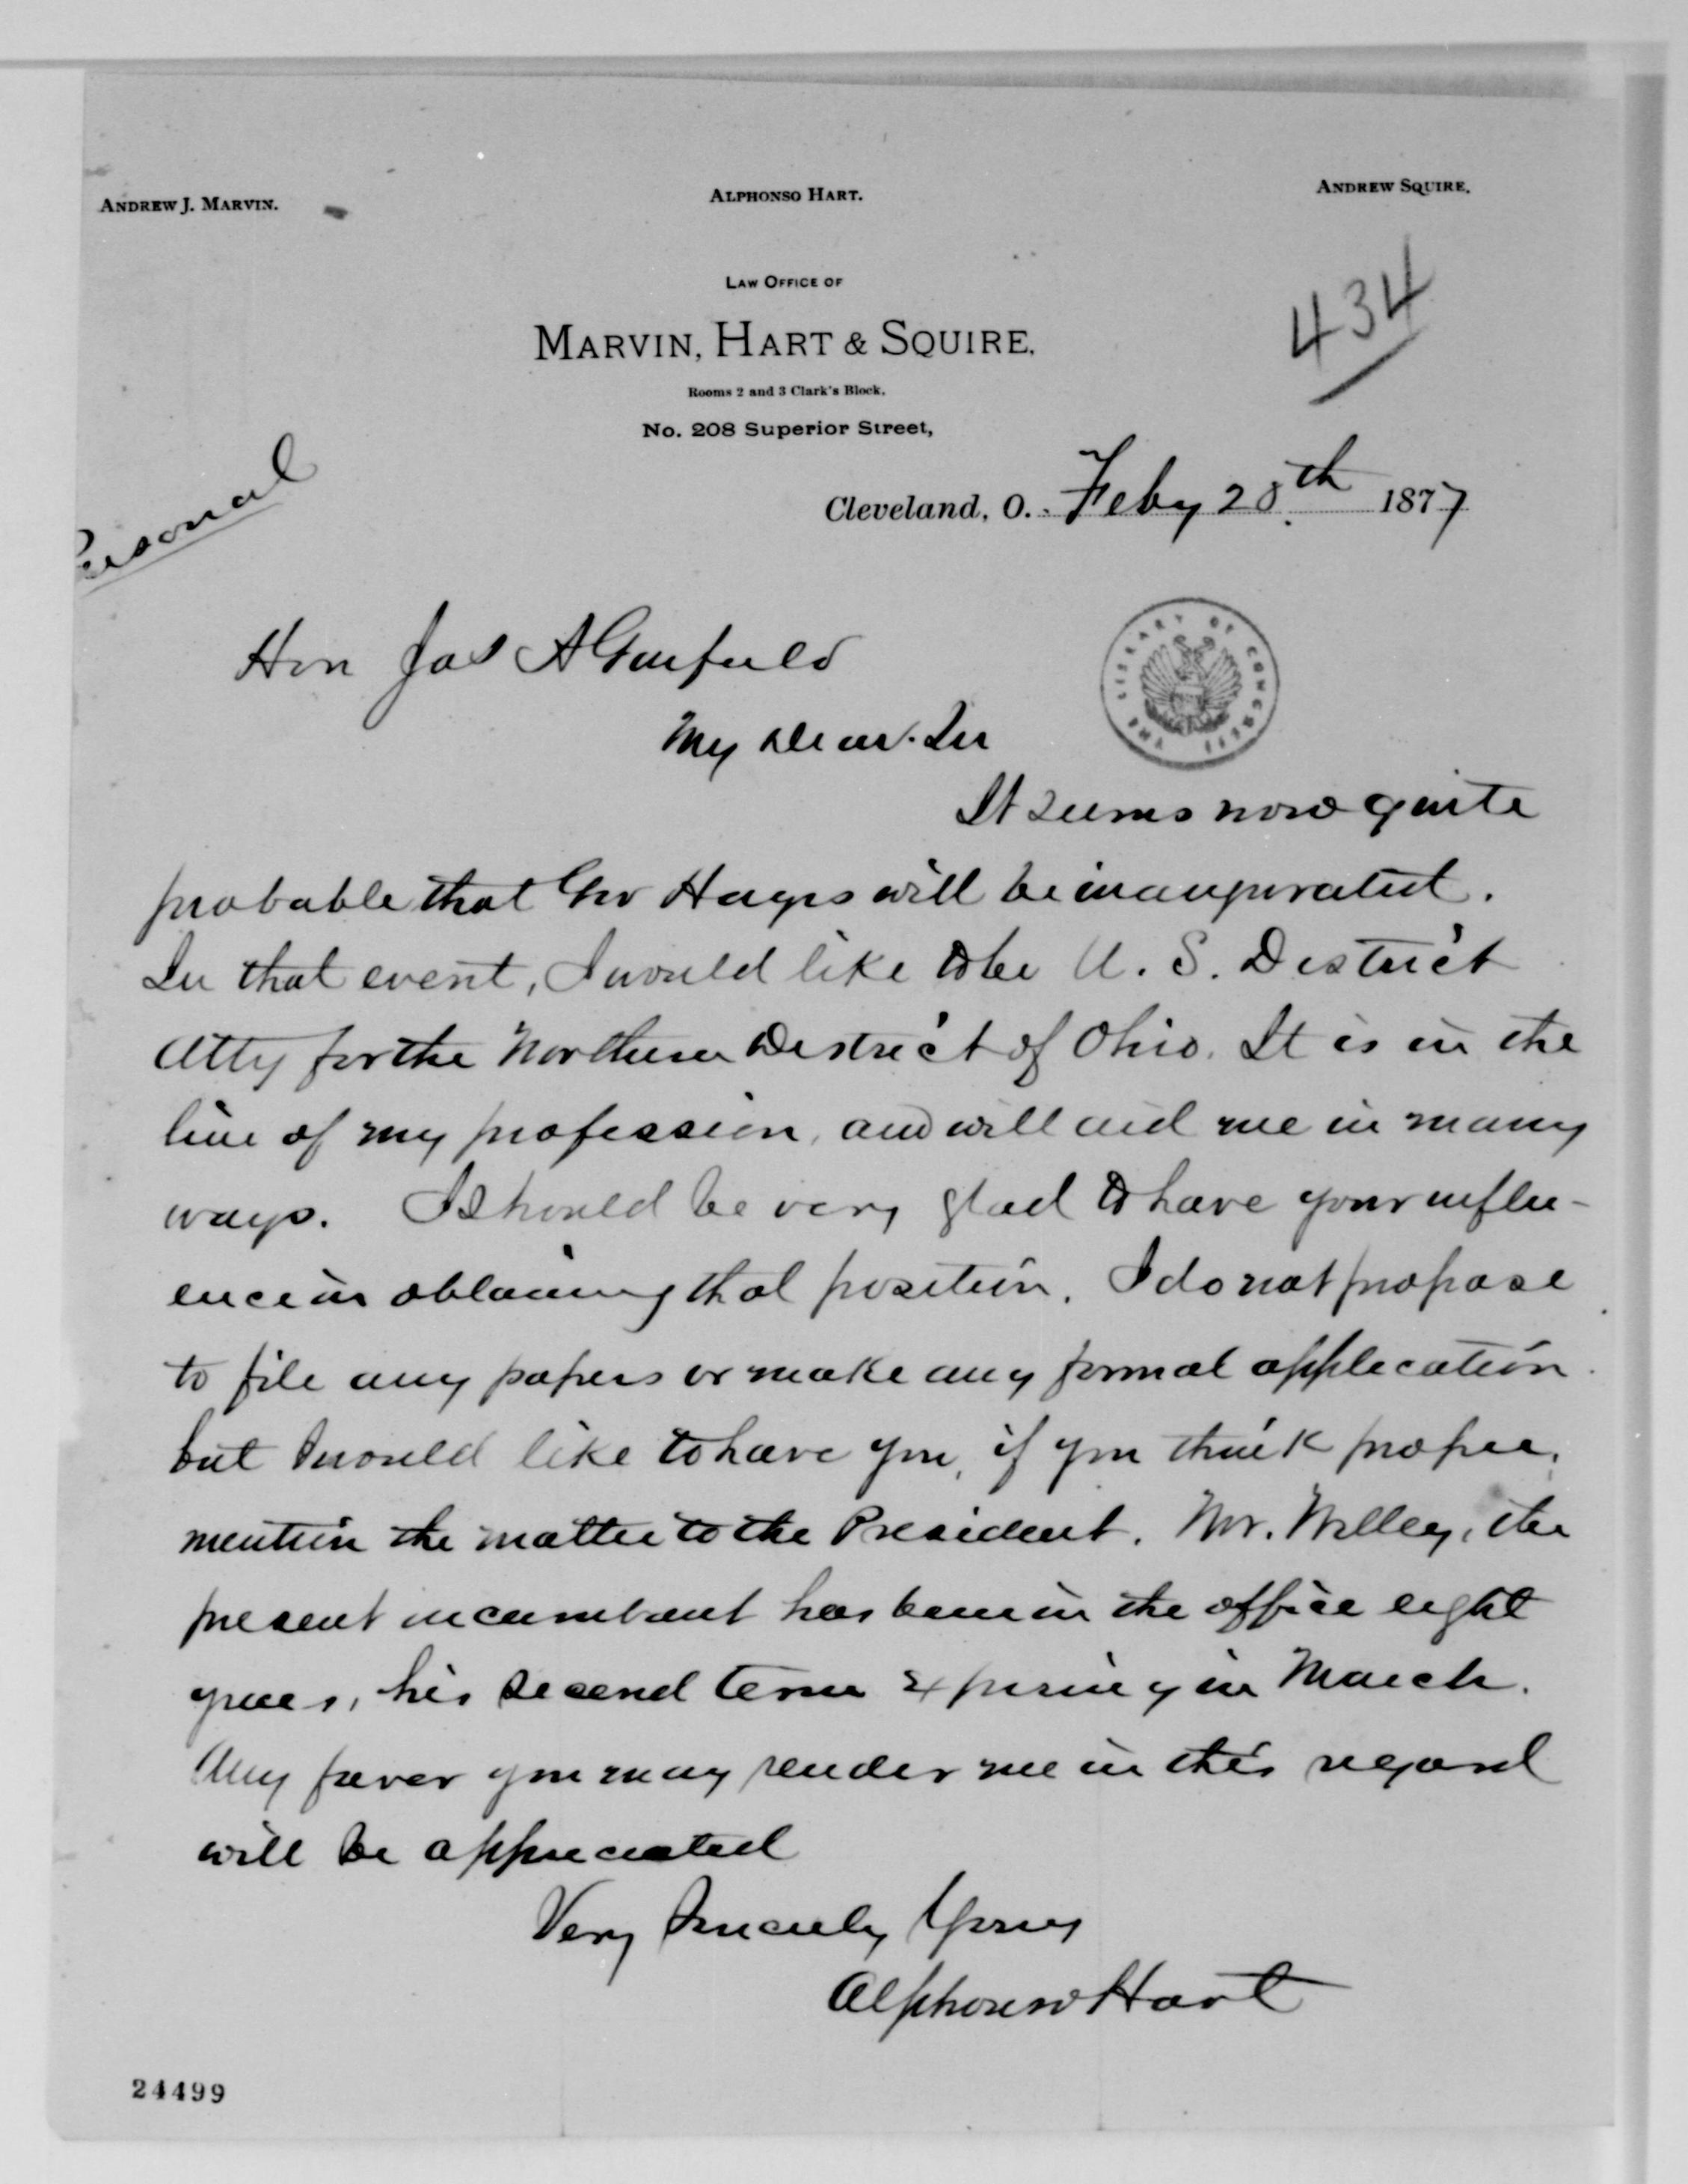 ANDREW J. MARVIN. ALPHONSO HART. ANDREW SQUIRE.
434
LAW OFFICE OF
MARVIN, HART & SQUIRE,
Rooms 2 and 3 Clark's Block,
No. 208 Superior Street,
Personal
Cleveland, O. Feby 28th 1877
Hon Jas A Garfield
THE LIBRARY OF CONGRESS
My Dear Sir
It seems now quite
probable that Gov Hayes will be inaugurated.
In that event, I would like to be U. S. District
Atty for the Northern District of Ohio. It is in the
line of my profession, and will aid me in many
ways. I should be very glad to have your influ-
ence in obtaining that position. I do not propose
to file any papers or make any formal application
but I would like to have you, if you think proper,
mention the matter to the President. Mr. Willey, the
present incumbent has been in the office eight
years, his second term expiring in March.
Any favor you may render me in this regard
will be appreciated
Very Sincerely Yours
Alphonso Hart
24499